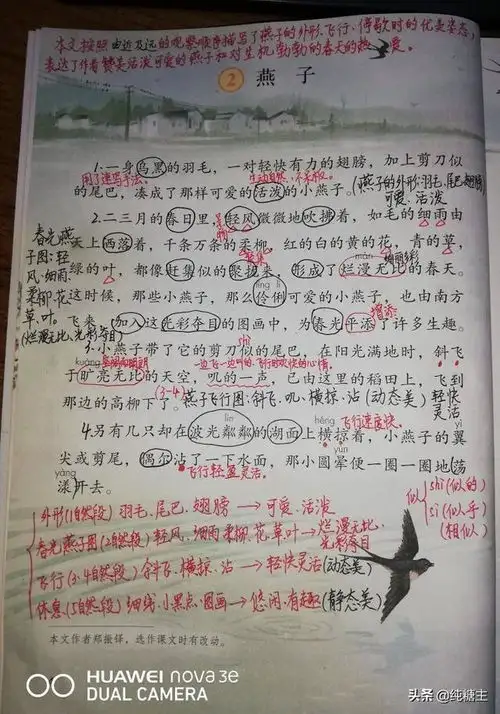 本文按照由近及远的观察顺序描写了燕子的外形、飞行、停歇时的优美姿态,
表达了作者赞美活泼可爱的燕子和对生机勃勃的春天的热爱。
2 燕子
1.一身乌黑的羽毛,一对轻快有力的翅膀,加上剪刀似
的尾巴,凑成了那样可爱的活泼的小燕子。(燕子的外形:羽毛、尾巴、翅膀
可爱、活泼
2.二三月的春日里,轻风微微地吹拂着,如毛的细雨由
春光燕
天上洒落着,千条万条的柔柳,红的白的黄的花,青的草,
子图:轻
绿的叶,都像赶集似的聚拢来,形成了烂漫无比的春天。
风、细雨
líng lì
柔柳、花
这时候,那些小燕子,那么伶俐可爱的小燕子,也由南方
草、叶。
飞来,加入这光彩夺目的图画中,为春光平添了许多生趣。
(烂漫无比、光彩夺目)
增添
shì
3.小燕子带了它的剪刀似的尾巴,在阳光满地时,斜飞
kuàng
于旷亮无比的天空,叽的一声,已由这里的稻田上,飞到
(3-4)
那边的高柳下了。燕子飞行图:斜飞、叽、横掠、沾(动态美)轻快
灵活
lín
héng
飞行速度快。
4.另有几只却在波光粼粼的湖面上横掠着,小燕子的翼
yì
尖或剪尾,偶尔沾了一下水面,那小圆晕便一圈一圈地荡
yàng
飞行轻盈灵活。
yùn
漾开去。
外形(1自然段)羽毛、尾巴、翅膀→可爱、活泼
春光燕子图(2自然段)轻风、细雨柔柳、花草叶→烂漫无比、
光彩夺目
飞行(3.4自然段)斜飞、横掠、沾→轻快灵活(动态美)
休息(5自然段)细线、小黑点、图画→悠闲、有趣(静态美)
似
shì(似的)
sì(似乎)
(相似)
本文作者郑振铎,选作课文时有改动。
HUAWEI nova 3e
DUAL CAMERA
头条 @纯糖主